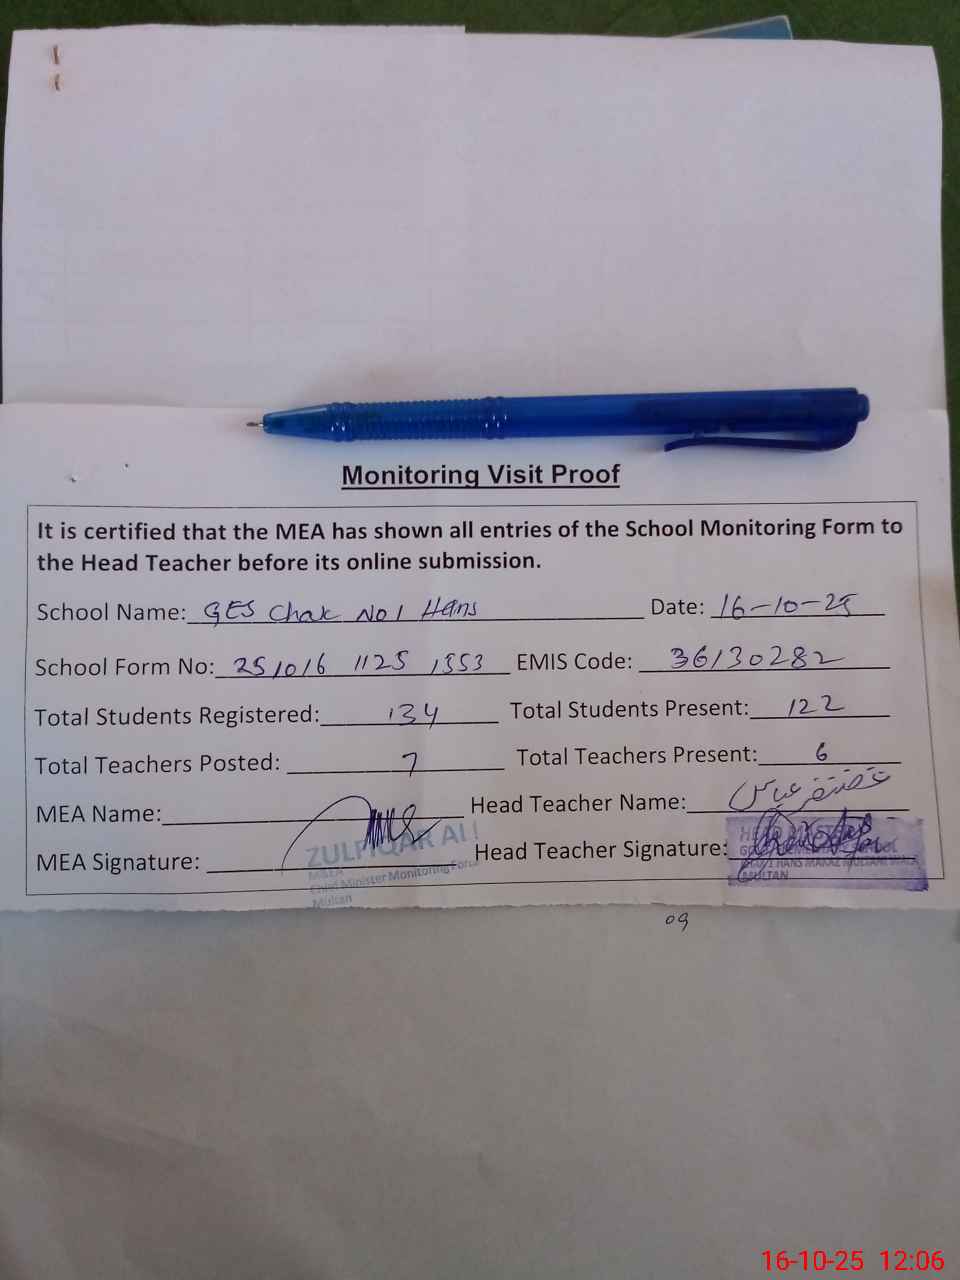 Monitoring Visit Proof
It is certified that the MEA has shown all entries of the School Monitoring Form to
the Head Teacher before its online submission.
School Name: GES Chak No 1 Hans Date: 16-10-25
School Form No: 251016 1125 1353 EMIS Code: 36130282
Total Students Registered: 134 Total Students Present: 122
Total Teachers Posted: 7 Total Teachers Present: 6
MEA Name: Head Teacher Name: غضنفر عباس
MEA Signature: Head Teacher Signature:
ZULFIQAR ALI
M&EA
Chief Minister Monitoring Force
Multan
MULTAN
09
16-10-25 12:06